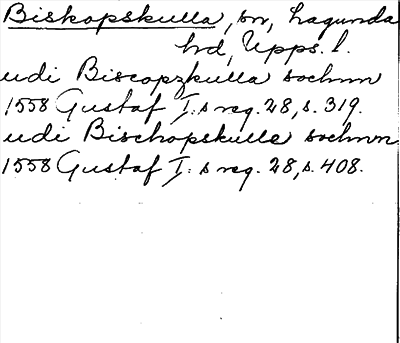 Biskopskulla, sn, Lagunda
hd, Upps. l.
udi Biscopzkulla sochnn
1558 Gustaf I:s reg. 28, s. 319.
udi Bischopskulle sochnn
1558 Gustaf I:s reg. 28, s. 408.